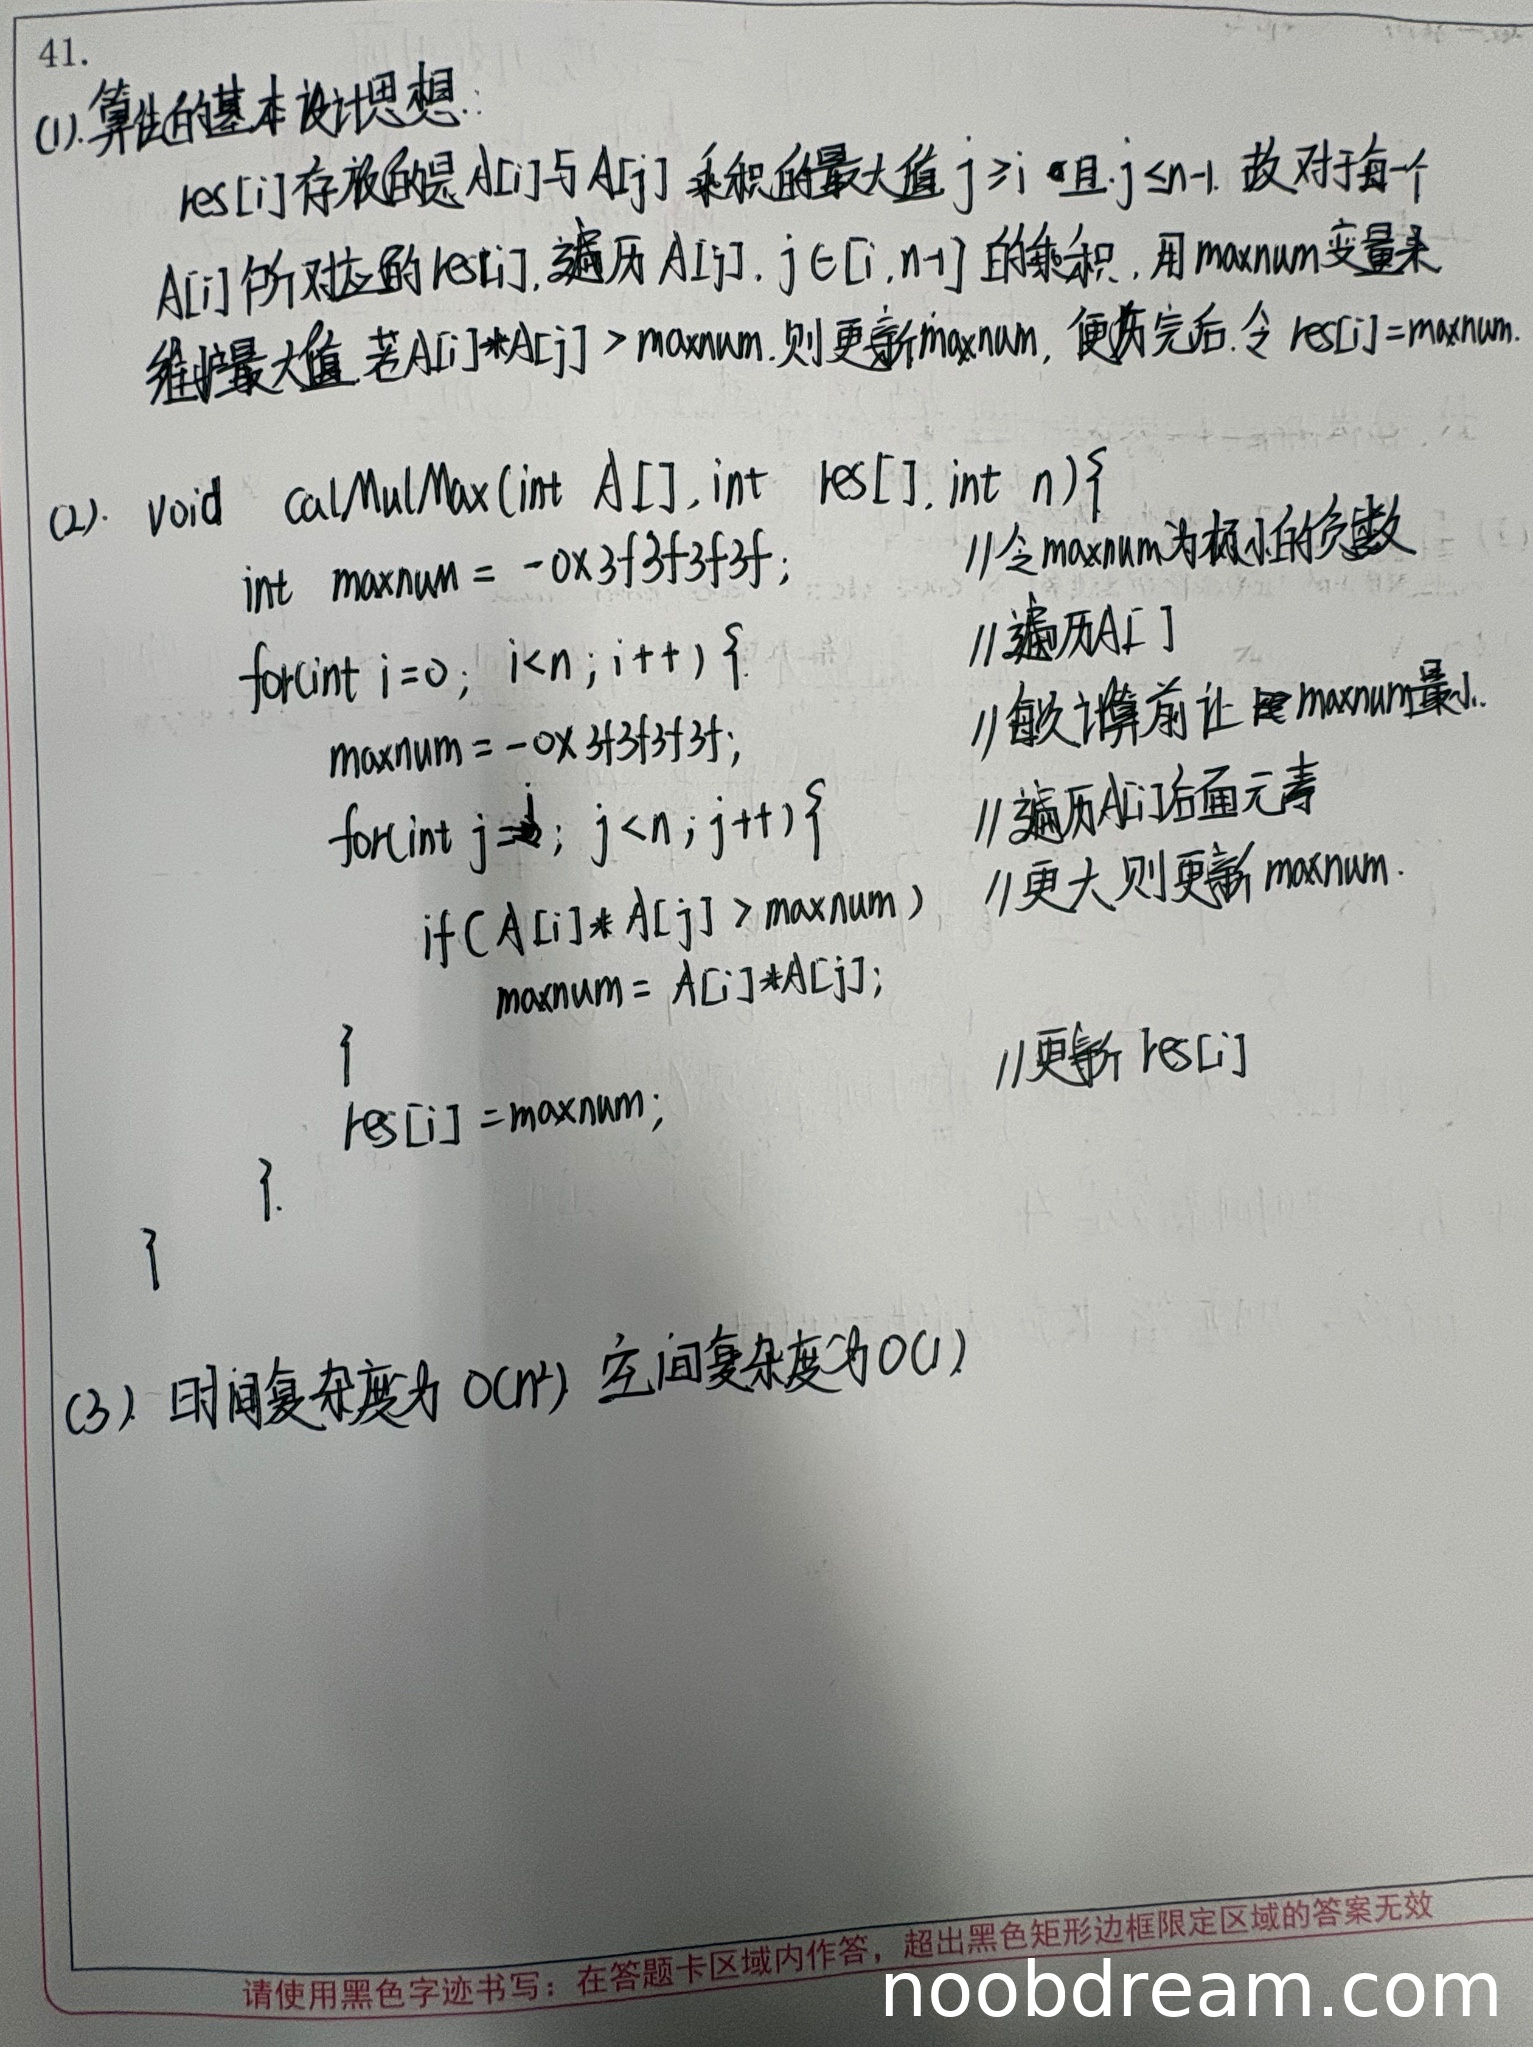 41.
(1).算法的基本设计思想.:
res[i]存放的是A[i]与A[j] 乘积的最大值 j≥i 且.j≤n-1. 故对于每一个
A[i]所对应的res[i],遍历 A[j], j∈[i,n-1] 的乘积,用maxnum变量来
维护最大值.若A[i]*A[j] > maxnum.则更新maxnum, 便历完后.令 res[i]=maxnum.
(2). void calMulMax(int A[],int res[],int n){
int maxnum = -0x3f3f3f3f; //令maxnum为极小的负数
for(int i=0; i<n;i++){ //遍历A[]
maxnum=-0x3f3f3f3f; //每次计算前让maxnum最小.
for(int j=i; j<n;j++){ //遍历A[i]后面元素
if(A[i]*A[j]>maxnum) //更大则更新maxnum.
maxnum= A[i]*A[j];
}
res[i]=maxnum; //更新res[i]
}.
}
(3). 时间复杂度为 O(n²). 空间复杂度为O(1).
请使用黑色字迹书写：在答题卡区域内作答，超出黑色矩形边框限定区域的答案无效
noobdream.com